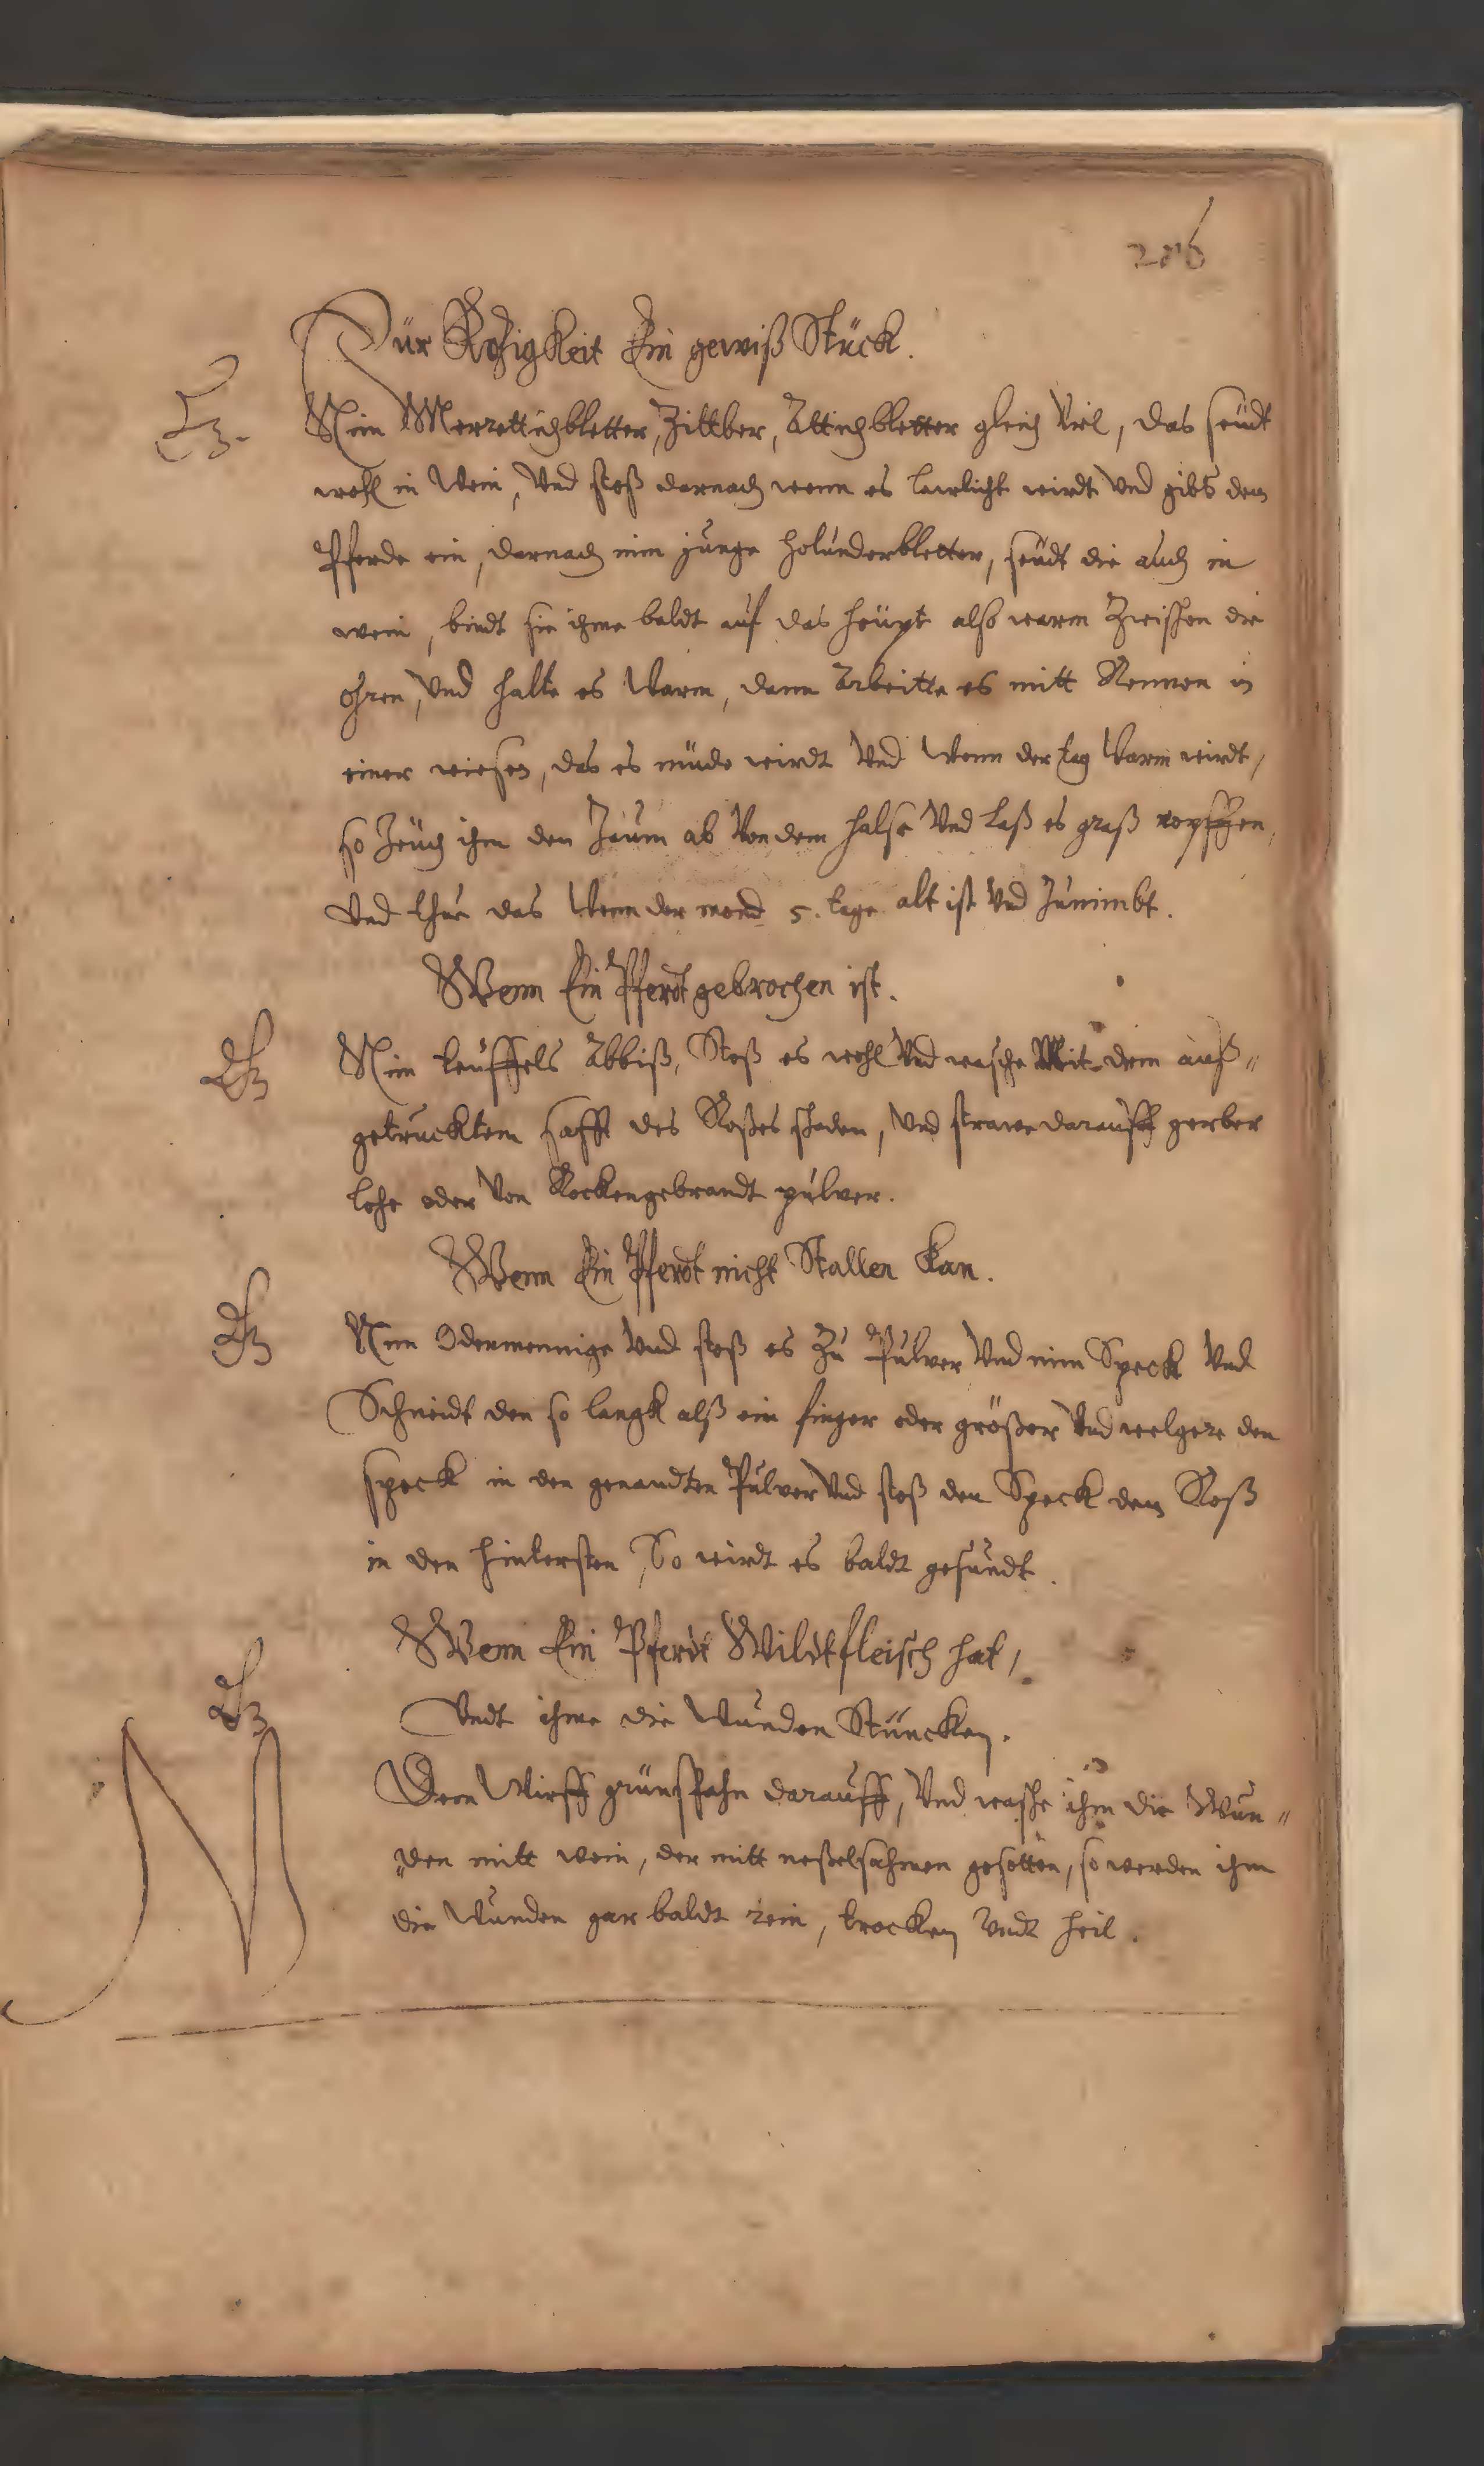 206
Für Rozigkeit Ein gewiß Stück.
Nim Merrettichbletter, Zittber, Attichbletter gleich Viel, das seüdt
wohl in Wein, Vnd stoß darnach wenn es lawlicht wirdt Vnd gibs dem
Pferde ein, darnach nim junge holunderbletter, seüdt die auch in
wein, bindt sie ihme baldt auf das heüpt also warm Zwischen die
ohren, Vnd halte es Warm, dann Arbeitte es mitt Rennen in
einer wiesen, das es müde wirdt Vnd Wenn der tag Warm wirdt,
so Zeuch ihm den Zaum ab Von dem halse Vnd laß es graß ropffen,
Vnd thue das Wenn der mond 5. tage alt ist Vnd Zunimbt.
Wenn Ein Pferdt gebrochen ist.
Nim teuffels Abbiß, Stoß es wohl Vnd wasche Mit dem auß„
getrucktem safft des Roßes schaden, Vnd strawe darauff gerber
lohe oder Von Rocken gebrandt pulver.
Wenn Ein Pferdt nicht Stallen Kan.
Nim Odermennige Vnd stoß es Zu Pulver Vnd nim Speck Vnd
Schneidt den so langk alß ein finger oder größer Vnd welgere den
speck in den genandten Pulver Vnd stoß den Speck dem Roß
in den hintersten, So wirdt es baldt gesundt.
Wenn Ein Pferdt Wildtfleisch hat,
Vndt ihme die Wunden Stüncken.
Dem Wirff grünspahn darauff, Vnd wasche ihm die Wun„
„den mitt wein, der mitt neßelsahmen gesotten, so werden ihm
die Wunden gar baldt rein, trocken Vndt heil.